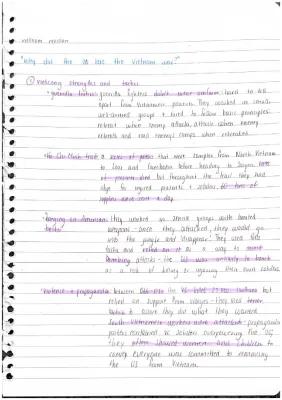 vietnam revision
"Why did the US lose the Vietnam war?"
① Vietcong strengths and tactics
- guerrilla tactics: guerrilla fighters didn't wear uniform: hard to tell
apart from Vietnamese peasants. They worked in small
well-armed groups + had to follow basic principles:
retreat when enemy attacks, attack when enemy
retreats and raid enemy camps when
- Ho Chi Minh trail: a series of paths that went from North Vietnam
to Laos and Cambodia before heading to Saigon. lots
of peasants died but throughout the trail they had
stops for injured peasants + soldiers. 60 tons of
supplies were sent a day
- hanging on Americans' belts: they worked in small groups with limited
weapons - once they attacked, they would go
into the jungle and 'disappear'. They used this
tactic and relied on it as a way to avoid
bombing attacks - the US was unlikely to bomb
at a risk of killing or injuring their own soldiers.
- violence + propaganda: between the VC killed 27,000 civilians but
relied on support from villages - they used terror
tactics to ensure they did what they wanted
South Vietnamese workers were attacked - propaganda
posters reinforced VC soldiers overpowering the US
They often showed women and children to
convey everyone was committed to removing
the US from Vietnam.